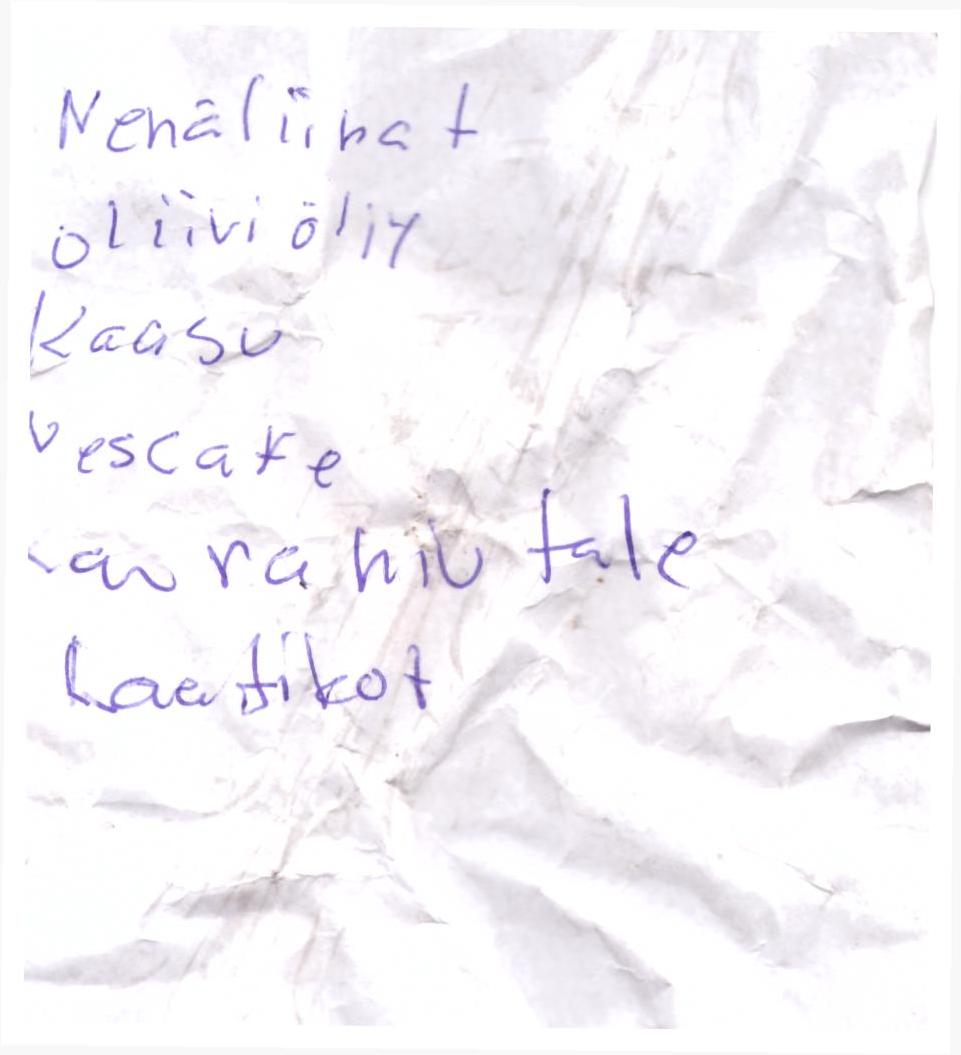 Nenäliinat
öliiviöliy
Kaasu
Vescake
kaurahiutale
Laatikot